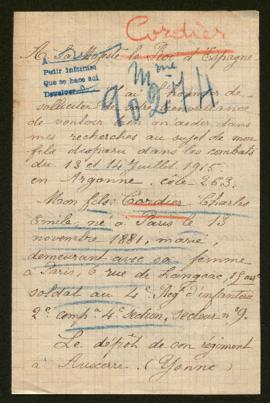 Cordier
A Sa Majesté le Roi d'Espagne
A
Pedir Informes
Que se hace así
Devolver
Mme
90274
J'ai l'honneur de
solliciter
de vouloir m'aider dans
mes recherches au sujet de mon
fils disparu dans les combats
du 13 et 14 Juillet 1915
en Argonne, côte 263.
Mon fils Cordier Charles
Emile né à Paris le 13
novembre 1881, marié,
demeurant avec sa femme
à Paris, 6 rue de Langeac, 15e arrt
soldat au 4e Regt d'infanterie
2e compie 4e section, secteur no 9.
Le dépôt de son régiment
à Auxerre. (Yonne)